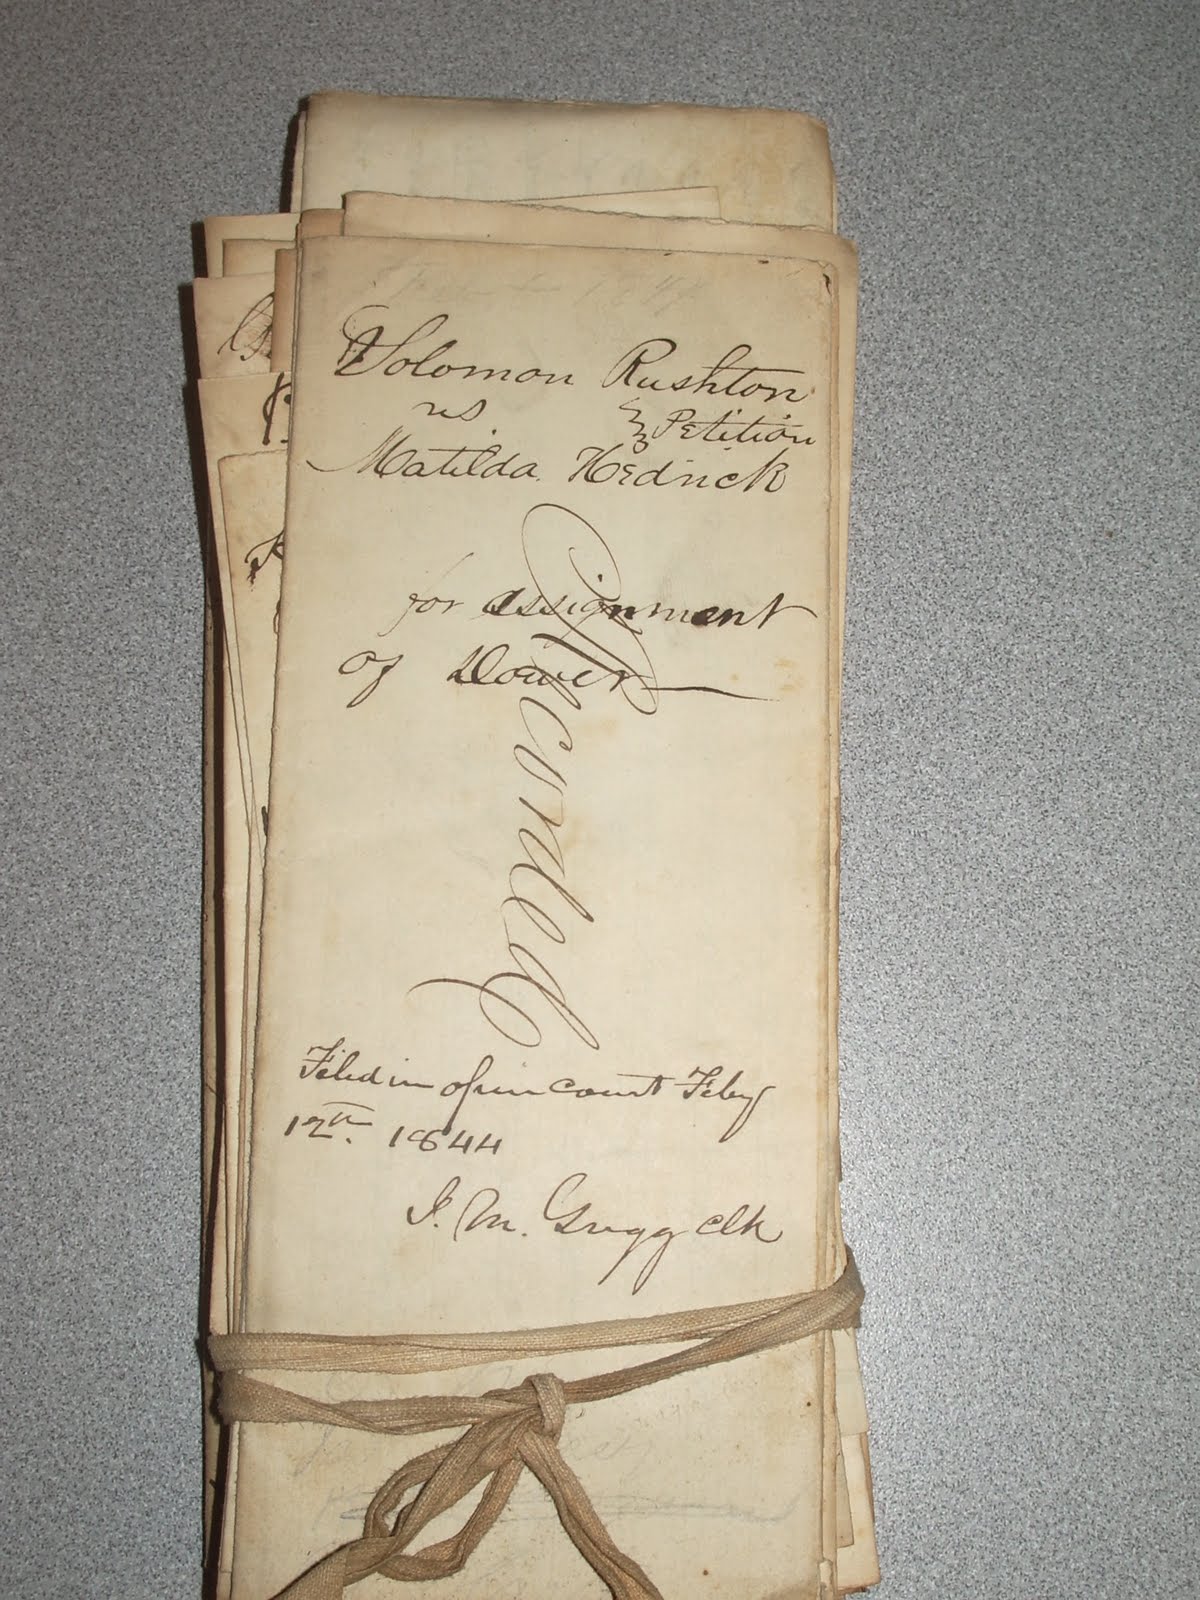 Solomon Rushton
vs } Petition
Matilda Hedrick
for assignment
of Dower
Recorded
Filed in open court Feby
12th. 1844
I. M. Gregg clk